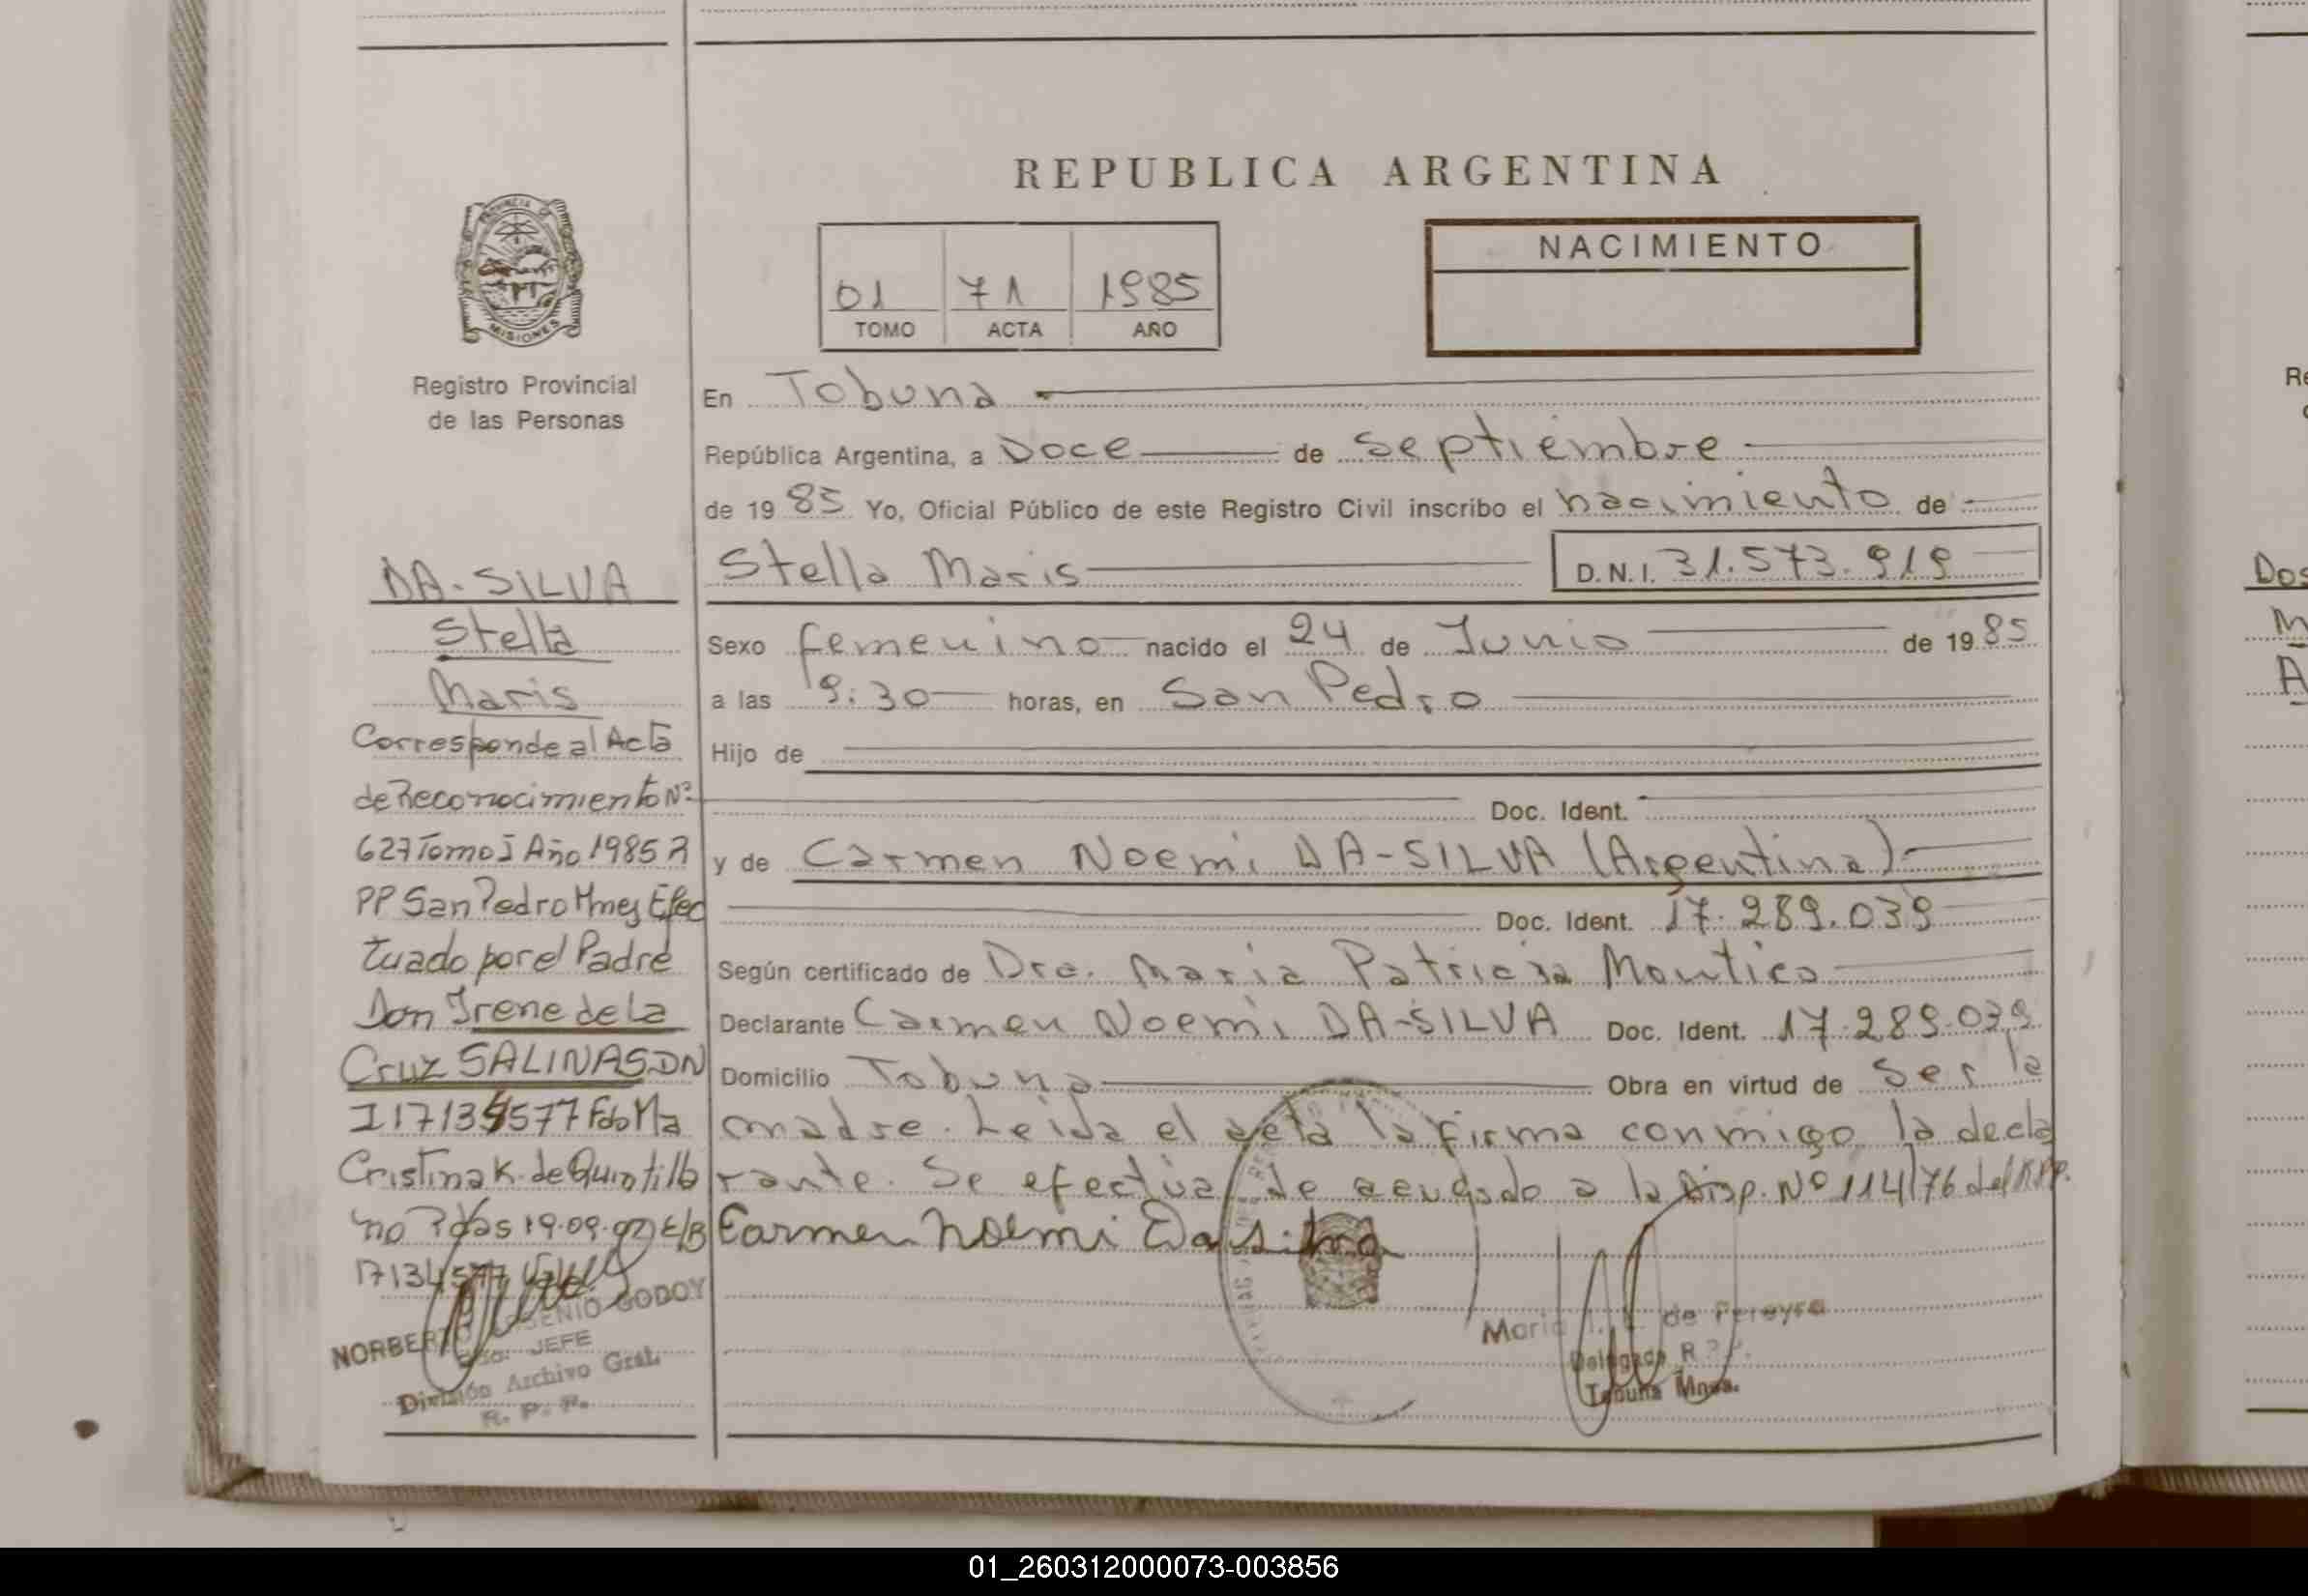 REPUBLICA ARGENTINA
PROVINCIA D
MISIONES
Registro Provincial
de las Personas
01 71 1985
TOMO ACTA AÑO
NACIMIENTO
En Tobuna
República Argentina, a Doce de Septiembre
de 19 85 Yo, Oficial Público de este Registro Civil inscribo el nacimiento de
Stella Maris D.N.I. 31.573.919
Sexo femenino nacido el 24 de Junio de 19 85
a las 9:30 horas, en San Pedro
Hijo de
Doc. Ident.
y de Carmen Noemi DA-SILVA (Argentina)
Doc. Ident. 17.289.039
Según certificado de Dra. Maria Patricia
Declarante Carmen Noemi DA-SILVA Doc. Ident. 17.289.039
Domicilio Tobuna Obra en virtud de Ser la
madre. Leida el acta la firma conmigo la decla
rante. Se efectúa de acuerdo a la Disp. Nº 114/76 del R.P.P.
Carmen Noemi Da silva
Maria de Pereyra
Delegada R.P.P.
Tobuna Mnes.
DA-SILVA
Stella
Maris
Corresponde al Acta
de Reconocimiento Nº
627 Tomo I Año 1985 R
PP San Pedro Mnes Efec
tuado por el Padre
Don Irene de La
Cruz SALINAS DN
I 17134577 Fdo Ma
Cristina K. de Quintilla
no Pdas 19.09.
17134577 Vale
NORBERTO ARSENIO GODOY
JEFE
División Archivo Gral.
R. P. P.
Re
Dos
M
A
01_260312000073-003856